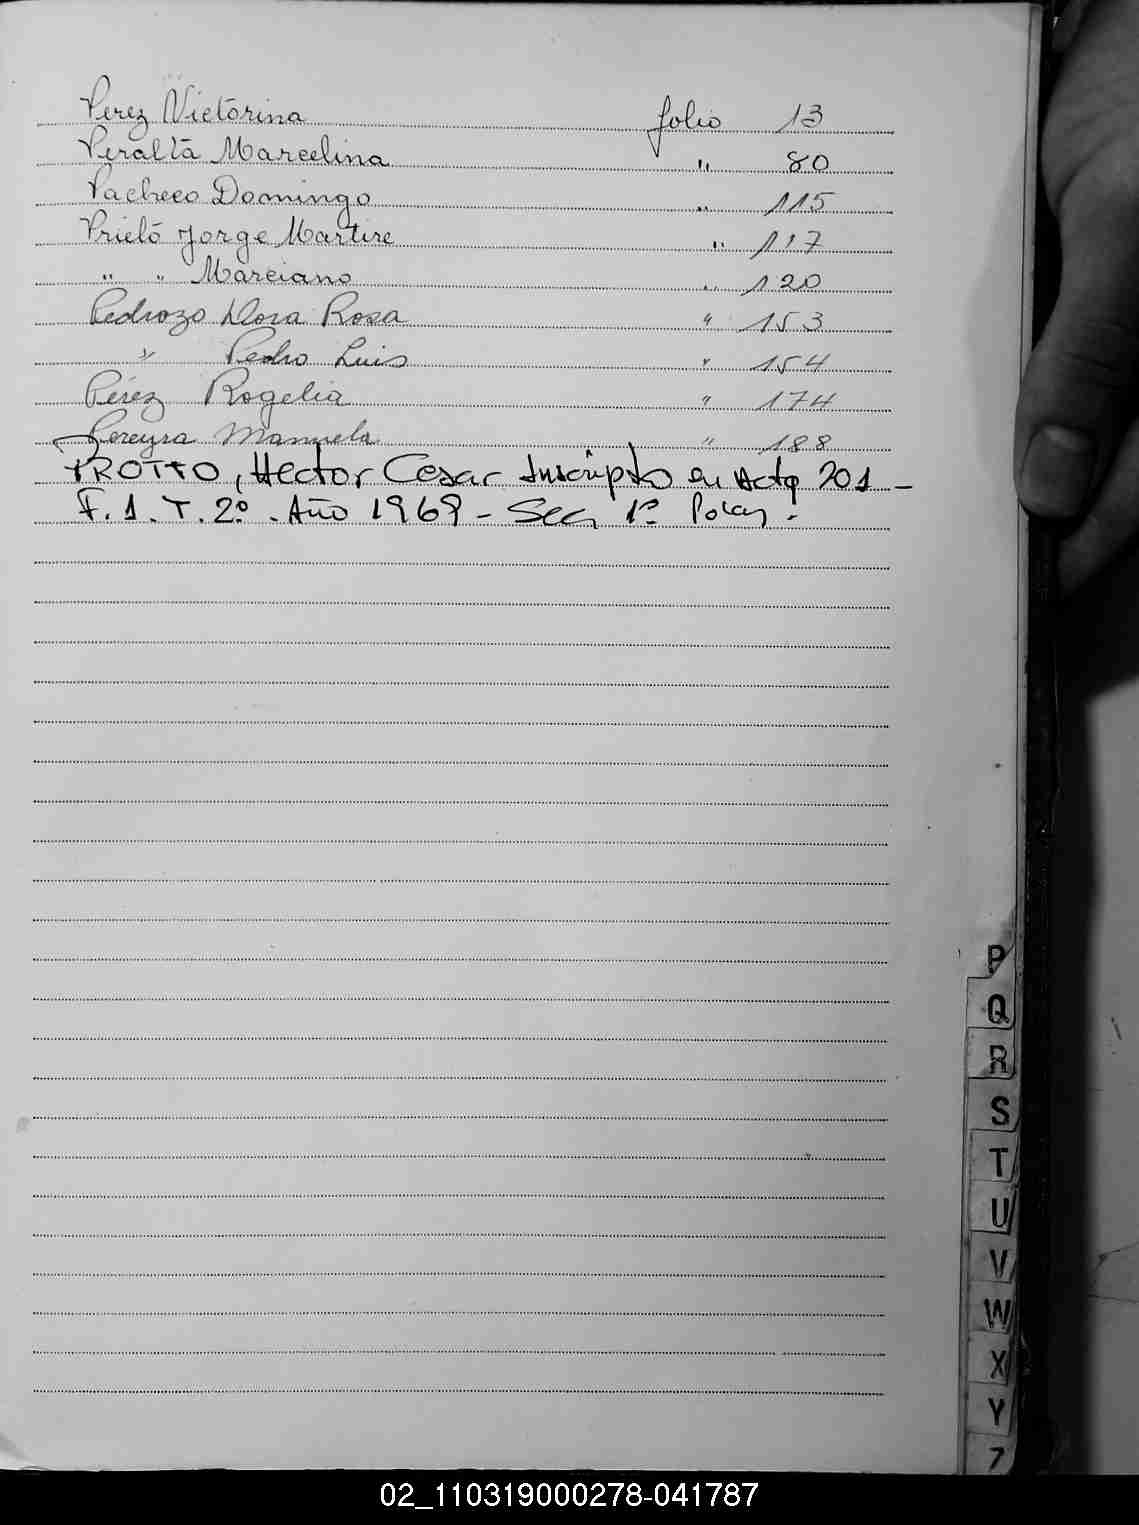 Perez Victorina folio 13
Peralta Marcelina " 80
Pacheco Domingo " 115
Prieto Jorge Martire " 117
" " Marciano " 120
Pedrozo Dora Rosa " 153
" Pedro Luis " 154
Pérez Rogelia " 174
Pereyra Manuela " 188
PROTTO, Hector Cesar Inscripto en Acta 201 -
F. 1. T. 2º. Año 1969 - Sec 1ª
P
Q
R
S
T
U
V
W
X
Y
Z
02_110319000278-041787